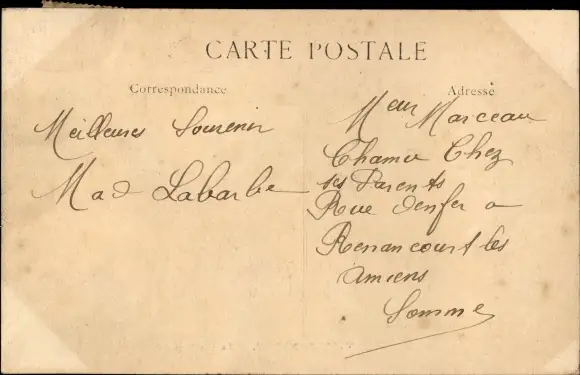 CARTE POSTALE
Correspondance
Meilleures Souvenir
Mad Labarbe
Adresse
Meur Marceau
Chamu Chez
ses Parents
Rue denfer a
Renancourt les
Amiens
Somme